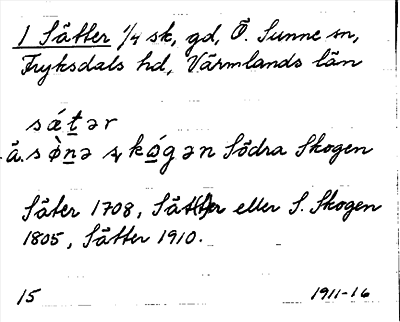 1 Sätter 1/4 sk, gd, Ö. Sunne sn,
Fryksdals hd, Värmlands län
sǽtər
ä. sònə skógən Södra Skogen
Säter 1708, Sätt(t)er eller S. Skogen
1805, Sätter 1910.
15 1911-16